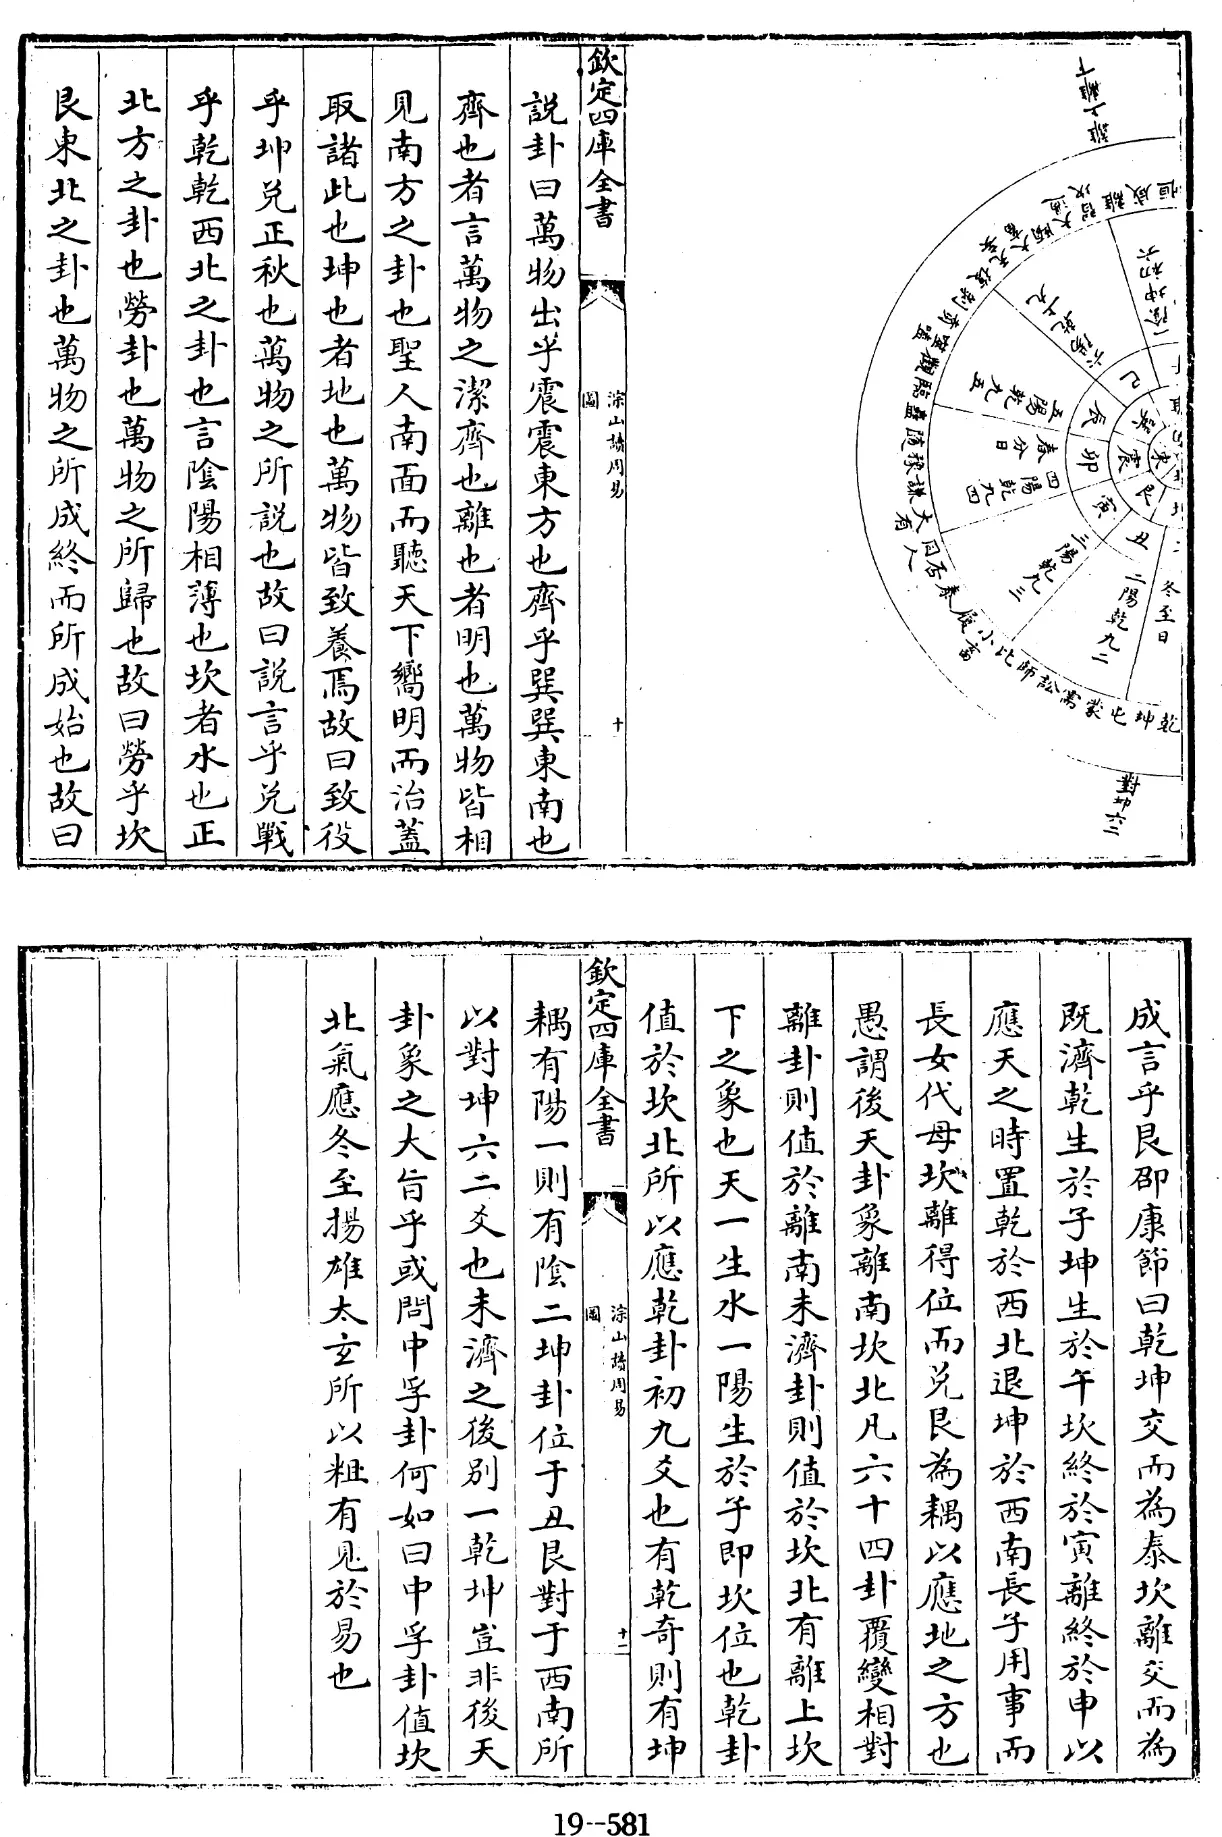 下離上坎
恒咸離習坎大過頤大畜无妄復剝賁噬嗑觀臨蠱隨豫謙大有同人否泰履小畜比師訟需蒙屯坤乾
一陰坤初六
六陽乾上九
五陽乾九五
春分日
四陽乾九四
三陽乾九三
二陽乾九二
冬至日
巳
辰
卯
寅
丑
巽
震
艮
東
對坤六二
欽定四庫全書
淙山讀周易
圖
十
說卦曰萬物出乎震震東方也齊乎巽巽東南也
齊也者言萬物之潔齊也離也者明也萬物皆相
見南方之卦也聖人南面而聽天下嚮明而治蓋
取諸此也坤也者地也萬物皆致養焉故曰致役
乎坤兌正秋也萬物之所說也故曰說言乎兌戰
乎乾乾西北之卦也言陰陽相薄也坎者水也正
北方之卦也勞卦也萬物之所歸也故曰勞乎坎
艮東北之卦也萬物之所成終而所成始也故曰
成言乎艮邵康節曰乾坤交而為泰坎離交而為
既濟乾生於子坤生於午坎終於寅離終於申以
應天之時置乾於西北退坤於西南長子用事而
長女代母坎離得位而兌艮為耦以應地之方也
愚謂後天卦象離南坎北凡六十四卦覆變相對
離卦則值於離南未濟卦則值於坎北有離上坎
下之象也天一生水一陽生於子即坎位也乾卦
值於坎北所以應乾卦初九爻也有乾奇則有坤
欽定四庫全書
淙山讀周易
圖
十一
耦有陽一則有陰二坤卦位于丑艮對于西南所
以對坤六二爻也未濟之後別一乾坤豈非後天
卦象之大旨乎或問中孚卦何如曰中孚卦值坎
北氣應冬至揚雄太玄所以粗有見於易也
19--581